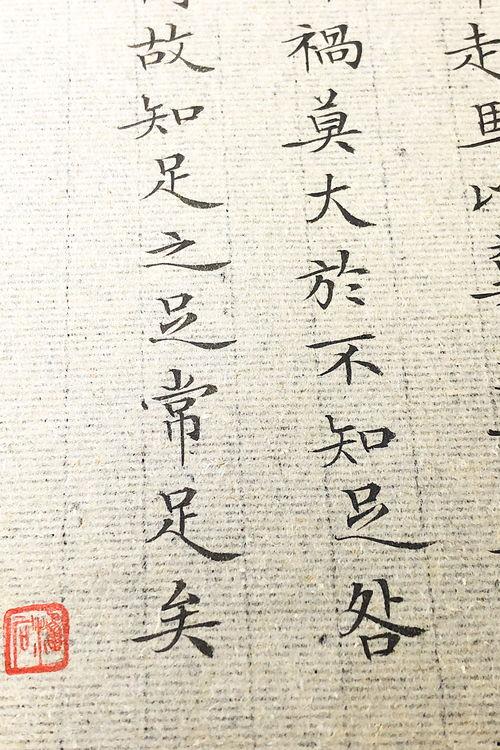 走馬以
禍莫大於不知足咎
故知足之足常足矣